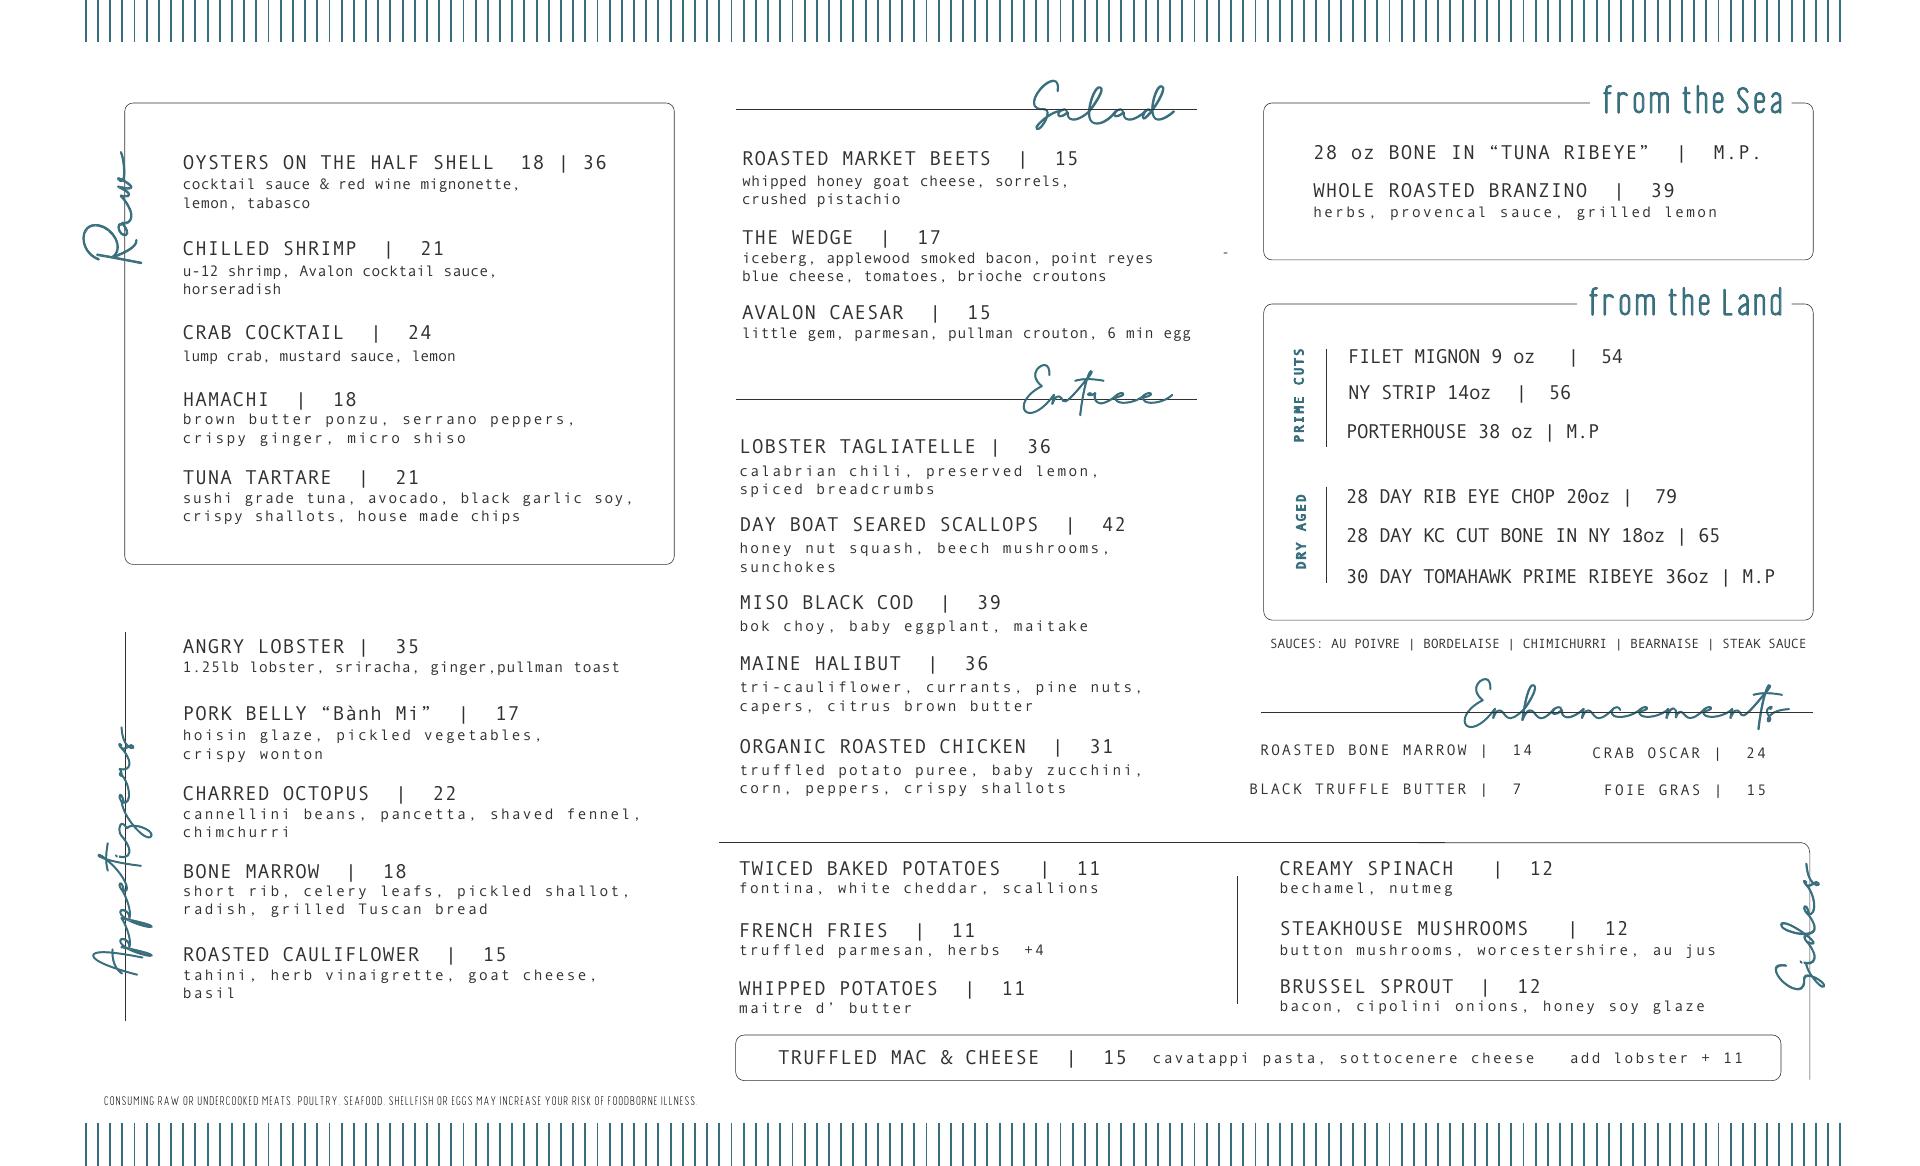 Raw
OYSTERS ON THE HALF SHELL 18 | 36
cocktail sauce & red wine mignonette,
lemon, tabasco
CHILLED SHRIMP | 21
u-12 shrimp, Avalon cocktail sauce,
horseradish
CRAB COCKTAIL | 24
lump crab, mustard sauce, lemon
HAMACHI | 18
brown butter ponzu, serrano peppers,
crispy ginger, micro shiso
TUNA TARTARE | 21
sushi grade tuna, avocado, black garlic soy,
crispy shallots, house made chips
Appetizers
ANGRY LOBSTER | 35
1.25lb lobster, sriracha, ginger,pullman toast
PORK BELLY “Bành Mi” | 17
hoisin glaze, pickled vegetables,
crispy wonton
CHARRED OCTOPUS | 22
cannellini beans, pancetta, shaved fennel,
chimchurri
BONE MARROW | 18
short rib, celery leafs, pickled shallot,
radish, grilled Tuscan bread
ROASTED CAULIFLOWER | 15
tahini, herb vinaigrette, goat cheese,
basil
Salad
ROASTED MARKET BEETS | 15
whipped honey goat cheese, sorrels,
crushed pistachio
THE WEDGE | 17
iceberg, applewood smoked bacon, point reyes
blue cheese, tomatoes, brioche croutons
AVALON CAESAR | 15
little gem, parmesan, pullman crouton, 6 min egg
Entree
LOBSTER TAGLIATELLE | 36
calabrian chili, preserved lemon,
spiced breadcrumbs
DAY BOAT SEARED SCALLOPS | 42
honey nut squash, beech mushrooms,
sunchokes
MISO BLACK COD | 39
bok choy, baby eggplant, maitake
MAINE HALIBUT | 36
tri-cauliflower, currants, pine nuts,
capers, citrus brown butter
ORGANIC ROASTED CHICKEN | 31
truffled potato puree, baby zucchini,
corn, peppers, crispy shallots
-
from the Sea
28 oz BONE IN “TUNA RIBEYE” | M.P.
WHOLE ROASTED BRANZINO | 39
herbs, provencal sauce, grilled lemon
from the Land
PRIME CUTS
FILET MIGNON 9 oz | 54
NY STRIP 14oz | 56
PORTERHOUSE 38 oz | M.P
DRY AGED
28 DAY RIB EYE CHOP 20oz | 79
28 DAY KC CUT BONE IN NY 18oz | 65
30 DAY TOMAHAWK PRIME RIBEYE 36oz | M.P
SAUCES: AU POIVRE | BORDELAISE | CHIMICHURRI | BEARNAISE | STEAK SAUCE
Enhancements
ROASTED BONE MARROW | 14
CRAB OSCAR | 24
BLACK TRUFFLE BUTTER | 7
FOIE GRAS | 15
Sides
TWICED BAKED POTATOES | 11
fontina, white cheddar, scallions
FRENCH FRIES | 11
truffled parmesan, herbs +4
WHIPPED POTATOES | 11
maitre d’ butter
CREAMY SPINACH | 12
bechamel, nutmeg
STEAKHOUSE MUSHROOMS | 12
button mushrooms, worcestershire, au jus
BRUSSEL SPROUT | 12
bacon, cipolini onions, honey soy glaze
TRUFFLED MAC & CHEESE | 15 cavatappi pasta, sottocenere cheese add lobster + 11
CONSUMING RAW OR UNDERCOOKED MEATS. POULTRY. SEAFOOD. SHELLFISH OR EGGS MAY INCREASE YOUR RISK OF FOODBORNE ILLNESS.